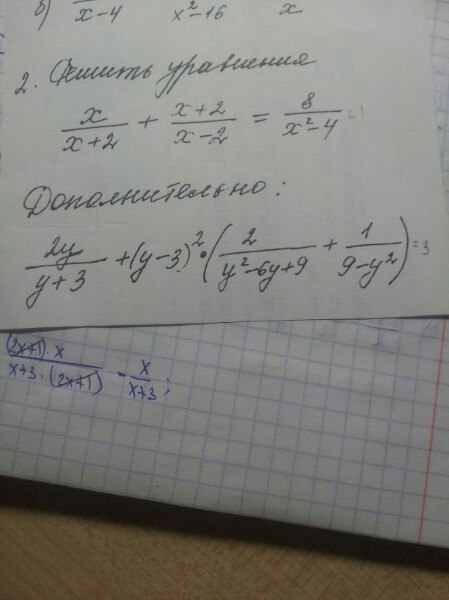 б) x-4 x²-16 x
2. Решить уравнения
x/(x+2) + (x+2)/(x-2) = 8/(x²-4)
Дополнительно:
2y/(y+3) + (y-3)² • (2/(y²-6y+9) + 1/(9-y²)) = 3
(2x+1)·x/(x+3·(2x+1)) = x/(x+3);